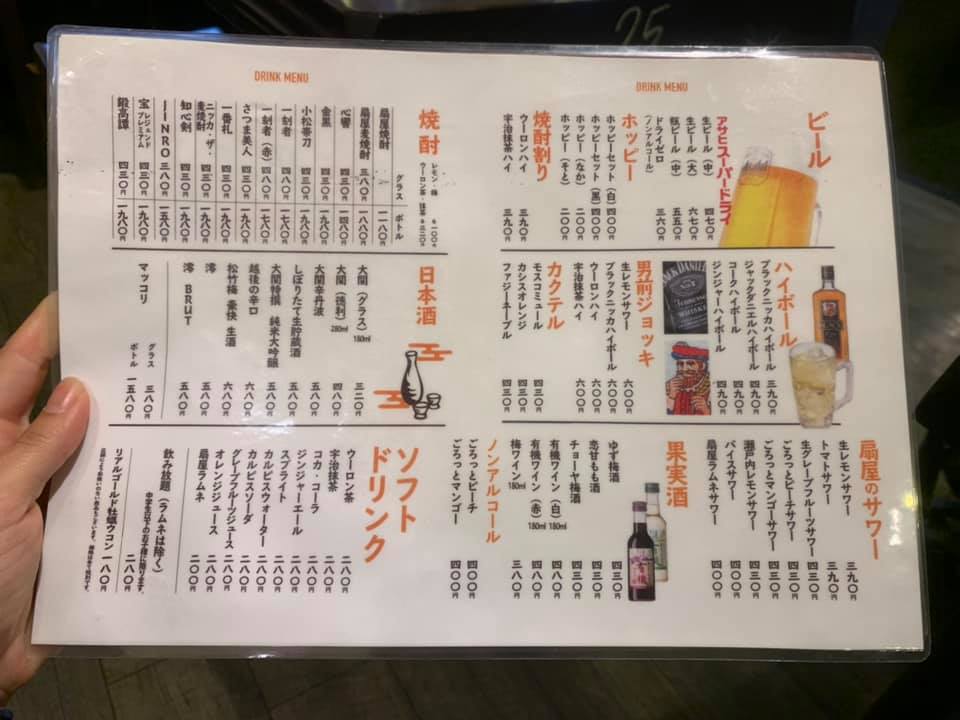 25
DRINK MENU
ビール
アサヒスーパードライ
生ビール（中） 四七〇円
生ビール（大） 六七〇円
瓶ビール（中） 五五〇円
ドライゼロ
（ノンアルコール） 三六〇円
ホッピー
ホッピーセット（白） 四〇〇円
ホッピーセット（黒） 四〇〇円
ホッピー（なか） 二〇〇円
ホッピー（そと） 二〇〇円
焼酎割り
ウーロンハイ 三九〇円
宇治抹茶ハイ 三九〇円
ハイボール
ブラックニッカハイボール 三九〇円
ジャックダニエルハイボール 四九〇円
コークハイボール 四九〇円
ジンジャーハイボール 四九〇円
JACK DANIEL'S
Tennessee
WHISKEY
男前ジョッキ
生レモンサワー 六〇〇円
ブラックニッカハイボール 六〇〇円
ウーロンハイ 六〇〇円
宇治抹茶ハイ 六〇〇円
カクテル
モスコミュール 四三〇円
カシスオレンジ 四三〇円
ファジーネーブル 四三〇円
扇屋のサワー
生レモンサワー 三九〇円
トマトサワー 三九〇円
生グレープフルーツサワー 四三〇円
ごろっとピーチサワー 四三〇円
ごろっとマンゴーサワー 四三〇円
瀬戸内レモンサワー 四三〇円
バイスサワー 四〇〇円
扇屋ラムネサワー 四〇〇円
果実酒
ゆず梅酒 四三〇円
恋甘もも酒 四三〇円
チョーヤ梅酒 四〇〇円
有機ワイン（白）180ml 四八〇円
有機ワイン（赤）180ml 四八〇円
梅ワイン 180ml 三八〇円
ノンアルコール
ごろっとピーチ 四〇〇円
ごろっとマンゴー 四〇〇円
DRINK MENU
焼酎
レモン・梅
ウーロン茶・抹茶
グラス ボトル
扇屋焼酎 一一八〇円
扇屋麦焼酎 三八〇円 一八八〇円
心響 四三〇円 一四八〇円
金黒 四三〇円 一九八〇円
小松帯刀 四三〇円 一九八〇円
一刻者 四八〇円 一七八〇円
一刻者（赤） 四八〇円 一七八〇円
さつま美人 四三〇円 一九八〇円
一番札 四三〇円 一九八〇円
ニッカ・ザ・
麦焼酎 四三〇円 一九八〇円
知心剣 四三〇円 一九八〇円
JINRO 三八〇円 一五八〇円
宝 レジェンド
プレミアム 四三〇円 一九八〇円
鍛高譚 四三〇円 一九八〇円
日本酒
大関（グラス）180ml 三二〇円
大関（徳利）280ml 四八〇円
大関辛丹波 五八〇円
しぼりたて生貯蔵酒 五八〇円
大関特撰 純米大吟醸 六八〇円
越後の辛口 六八〇円
松竹梅 豪快 生酒 六八〇円
澪 五八〇円
澪 BRUT 五八〇円
マッコリ グラス 三八〇円
ボトル 一五八〇円
ソフト
ドリンク
ウーロン茶 二八〇円
宇治抹茶 二八〇円
コカ・コーラ 二八〇円
ジンジャーエール 二八〇円
スプライト 二八〇円
カルピスウォーター 二八〇円
カルピスソーダ 二八〇円
グレープフルーツジュース 二八〇円
オレンジジュース 二八〇円
扇屋ラムネ 二〇〇円
飲み放題（ラムネは除く） 二八〇円
中学生以下のお子様に限ります。
リアルゴールド・牡蠣ウコン 一八〇円